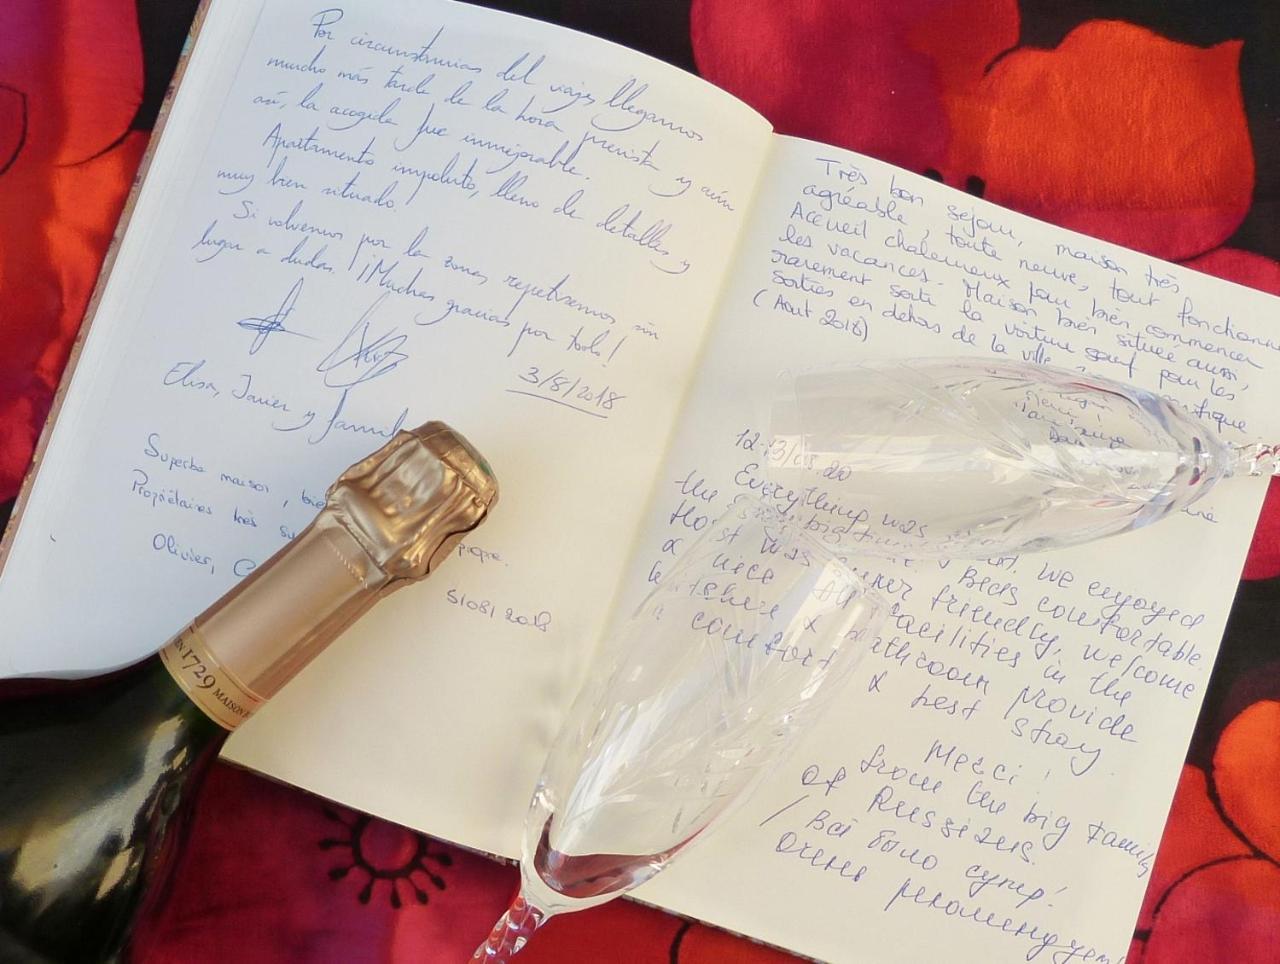 Por circunstancias del viaje, llegamos
mucho más tarde de la hora prevista y aún
así, la acogida fue inmejorable.
Apartamento impoluto, lleno de detalles y
muy bien situado!
Si volvemos por la zona, repetiremos sin
lugar a dudas. ¡¡Muchas gracias por todo!
3/8/2018
Elisa, Javier y famil
Superbe maison, bie
Propriétaires très propre.
Olivier, C
5/08/2018
Très bon séjour, maison très
agréable, toute neuve, tout fonctionne
Accueil chaleureux pour bien commencer
les vacances. Maison bien située aussi,
rarement sorti la voiture sauf pour les
sorties en dehors de la ville
(Aout 2018)
Everything was
the big We enjoyed
Host was super friendly, welcome
Beds comfortable
& nice facilities in the
kitchen & bathroom provide
comfort & best stay
Merci!
from the big family
of Russians.
/ Всё было супер!
очень рекомендуем
EN 1729 MAISON